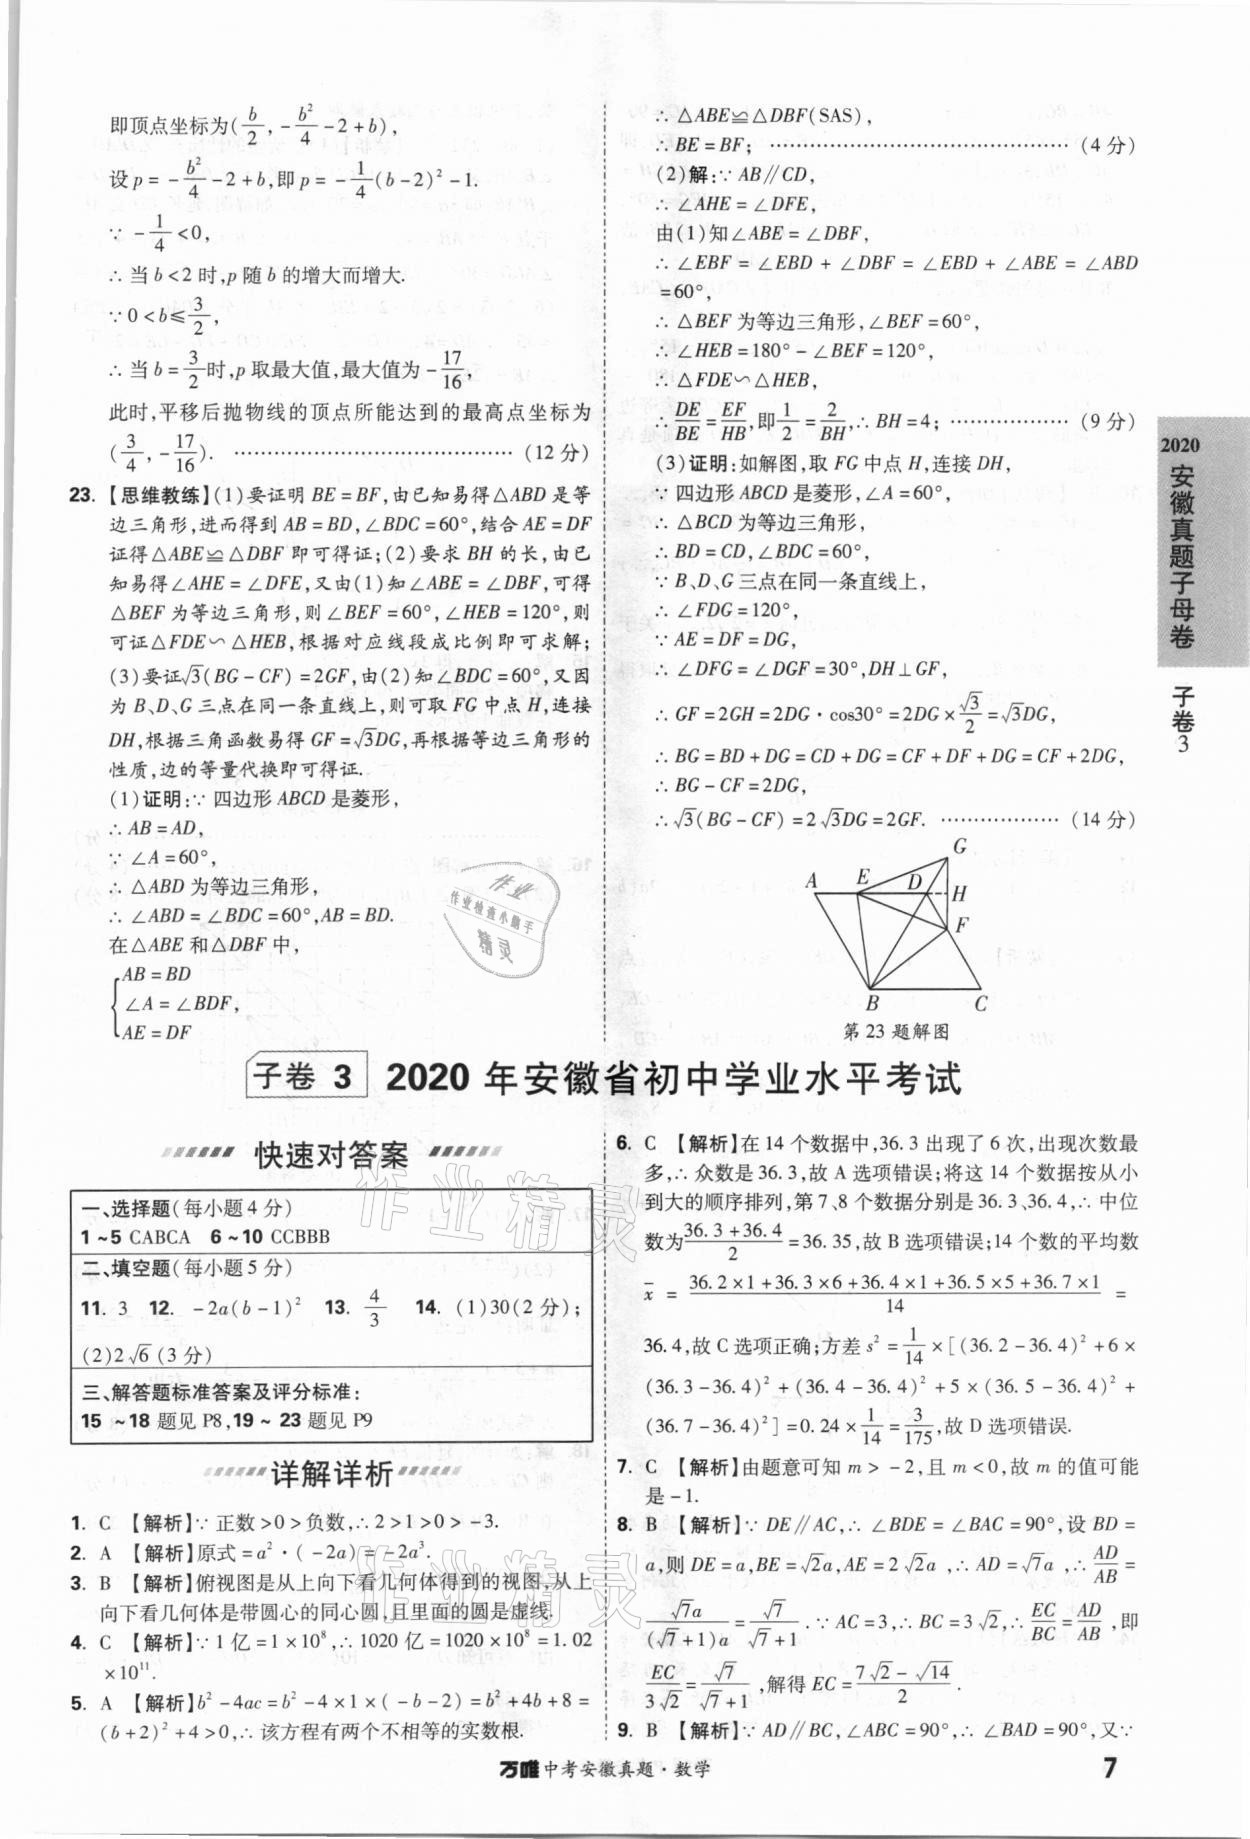 即顶点坐标为(b/2, -b²/4-2+b),
设p=-b²/4-2+b,即p=-1/4(b-2)²-1.
∵-1/4<0,
∴当b<2时,p随b的增大而增大.
∵0<b≤3/2,
∴当b=3/2时,p取最大值,最大值为-17/16,
此时,平移后抛物线的顶点所能达到的最高点坐标为
(3/4, -17/16). …………………………………(12分)
23.【思维教练】(1)要证明BE=BF,由已知易得△ABD是等
边三角形,进而得到AB=BD,∠BDC=60°,结合AE=DF
证得△ABE≌△DBF即可得证;(2)要求BH的长,由已
知易得∠AHE=∠DFE,又由(1)知∠ABE=∠DBF,可得
△BEF为等边三角形,则∠BEF=60°,∠HEB=120°,则
可证△FDE∽△HEB,根据对应线段成比例即可求解;
(3)要证√3(BG-CF)=2GF,由(2)知∠BDC=60°,又因
为B、D、G三点在同一条直线上,则可取FG中点H,连接
DH,根据三角函数易得GF=√3DG,再根据等边三角形的
性质,边的等量代换即可得证.
(1)证明:∵四边形ABCD是菱形,
∴AB=AD,
∵∠A=60°,
∴△ABD为等边三角形,
∴∠ABD=∠BDC=60°,AB=BD.
在△ABE和△DBF中,
AB=BD
∠A=∠BDF,
AE=DF
∴△ABE≌△DBF(SAS),
∴BE=BF; ……………………………………(4分)
(2)解:∵AB∥CD,
∴∠AHE=∠DFE,
由(1)知∠ABE=∠DBF,
∴∠EBF=∠EBD+∠DBF=∠EBD+∠ABE=∠ABD
=60°,
∴△BEF为等边三角形,∠BEF=60°,
∴∠HEB=180°-∠BEF=120°,
∴△FDE∽△HEB,
∴DE/BE=EF/HB,即1/2=2/BH,∴BH=4; ………………(9分)
(3)证明:如解图,取FG中点H,连接DH,
∵四边形ABCD是菱形,∠A=60°,
∴△BCD为等边三角形,
∴BD=CD,∠BDC=60°,
∵B、D、G三点在同一条直线上,
∴∠FDG=120°,
∵AE=DF=DG,
∴∠DFG=∠DGF=30°,DH⊥GF,
∴GF=2GH=2DG·cos30°=2DG×√3/2=√3DG,
∴BG=BD+DG=CD+DG=CF+DF+DG=CF+2DG,
∴BG-CF=2DG,
∴√3(BG-CF)=2√3DG=2GF. ………………(14分)
G
A E D H
F
B C
第23题解图
2020
安徽真题子母卷
子卷3
子卷 3 2020年安徽省初中学业水平考试
快速对答案
一、选择题(每小题4分)
1~5 CABCA 6~10 CCBBB
二、填空题(每小题5分)
11. 3 12. -2a(b-1)² 13. 4/3 14. (1)30(2分);
(2)2√6(3分)
三、解答题标准答案及评分标准:
15~18题见P8,19~23题见P9
详解详析
1. C 【解析】∵正数>0>负数,∴2>1>0>-3.
2. A 【解析】原式=a²·(-2a)=-2a³.
3. B 【解析】俯视图是从上向下看几何体得到的视图,从上
向下看几何体是带圆心的同心圆,且里面的圆是虚线.
4. C 【解析】∵1亿=1×10⁸,∴1020亿=1020×10⁸=1.02
×10¹¹.
5. A 【解析】b²-4ac=b²-4×1×(-b-2)=b²+4b+8=
(b+2)²+4>0,∴该方程有两个不相等的实数根.
6. C 【解析】在14个数据中,36.3出现了6次,出现次数最
多,∴众数是36.3,故A选项错误;将这14个数据按从小
到大的顺序排列,第7、8个数据分别是36.3、36.4,∴中位
数为(36.3+36.4)/2=36.35,故B选项错误;14个数的平均数
x̄=(36.2×1+36.3×6+36.4×1+36.5×5+36.7×1)/14=
36.4,故C选项正确;方差s²=1/14×[(36.2-36.4)²+6×
(36.3-36.4)²+(36.4-36.4)²+5×(36.5-36.4)²+
(36.7-36.4)²]=0.24×1/14=3/175,故D选项错误.
7. C 【解析】由题意可知m>-2,且m<0,故m的值可能
是-1.
8. B 【解析】∵DE∥AC,∴∠BDE=∠BAC=90°,设BD=
a,则DE=a,BE=√2a,AE=2√2a,∴AD=√7a,∴AD/AB=
√7a/(√7+1)a=√7/(√7+1).∵AC=3,∴BC=3√2,∴EC/BC=AD/AB,即
EC/3√2=√7/(√7+1),解得EC=(7√2-√14)/2.
9. B 【解析】∵AD∥BC,∠ABC=90°,∴∠BAD=90°,又∵
万唯中考安徽真题·数学
7
作业
作业检查小助手
精灵
作业精灵
作业精灵